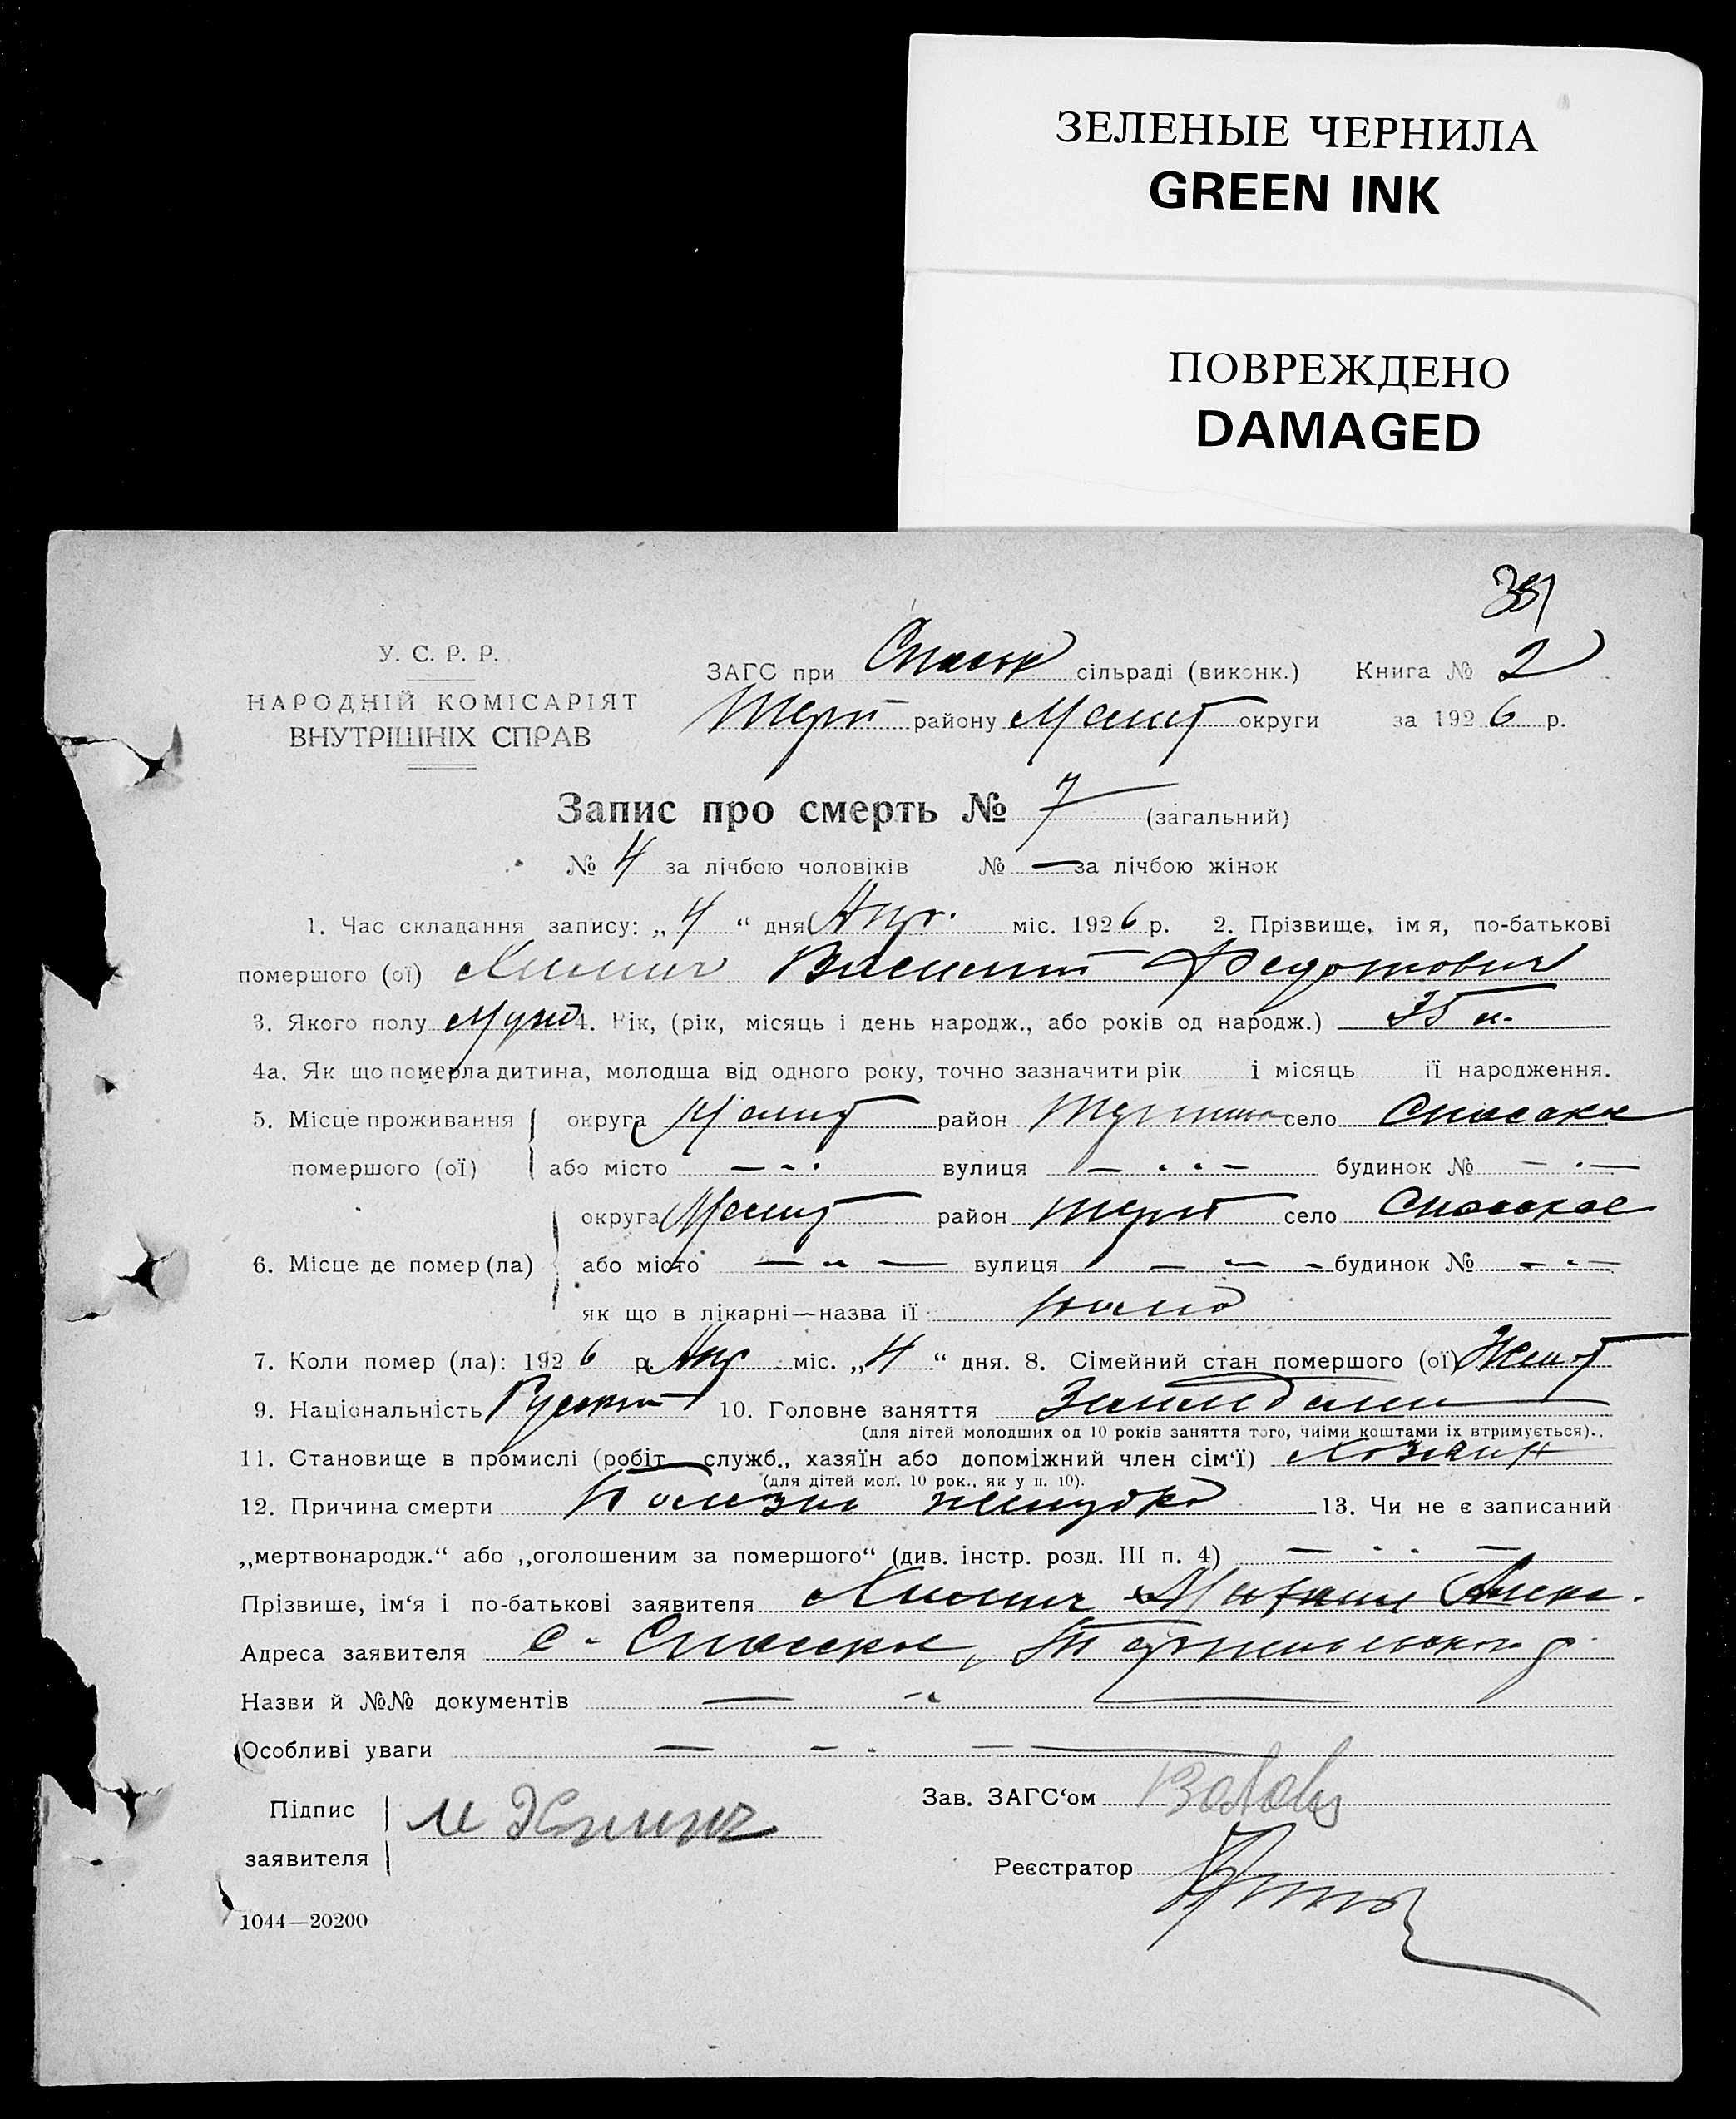 ЗЕЛЕНЫЕ ЧЕРНИЛА
GREEN INK
ПОВРЕЖДЕНО
DAMAGED
У. С. Р. Р.
НАРОДНІЙ КОМІСАРІЯТ
ВНУТРІШНІХ СПРАВ
ЗАГС при Спасск сільраді (виконк.) Книга № 2
району округи за 1926 р.
Запис про смерть № 7 (загальний)
№ 4 за лічбою чоловіків № — за лічбою жінок
1. Час складання запису: „4“ дня Апр. міс. 1926 р. 2. Прізвище, імя, по-батькові
помершого (ої) Василий Федотович
3. Якого полу Муж 4. Рік, (рік, місяць і день народж., або років од народж.)
4а. Як що померла дитина, молодша від одного року, точно зазначити рік і місяць її народження.
5. Місце проживання округа район село Спасское
помершого (ої) або місто — - - вулиця — - - — будинок № — - —
округа район село Спасское
6. Місце де помер (ла) або місто — - — вулиця — - - будинок № - - —
як що в лікарні—назва її дома
7. Коли помер (ла): 1926 р. Апр міс. „4“ дня. 8. Сімейний стан помершого (ої) Жен
9. Національність Русский 10. Головне заняття
(для дітей молодших од 10 років заняття того, чиїми коштами їх втримується)..
11. Становище в промислі (робіт. служб., хазяїн або допоміжний член сім‘ї) Хозяин
(для дітей мол. 10 рок., як у п. 10).
12. Причина смерти Болезнь желудка 13. Чи не є записаний
„мертвонародж.“ або „оголошеним за помершого“ (див. інстр. розд. III п. 4) — - - —
Прізвише, ім‘я і по-батькові заявителя
Адреса заявителя с. Спасское,
Назви й №№ документів — - —
Особливі уваги — - - —
Підпис
заявителя
Зав. ЗАГС‘ом
Реєстратор
1044—20200